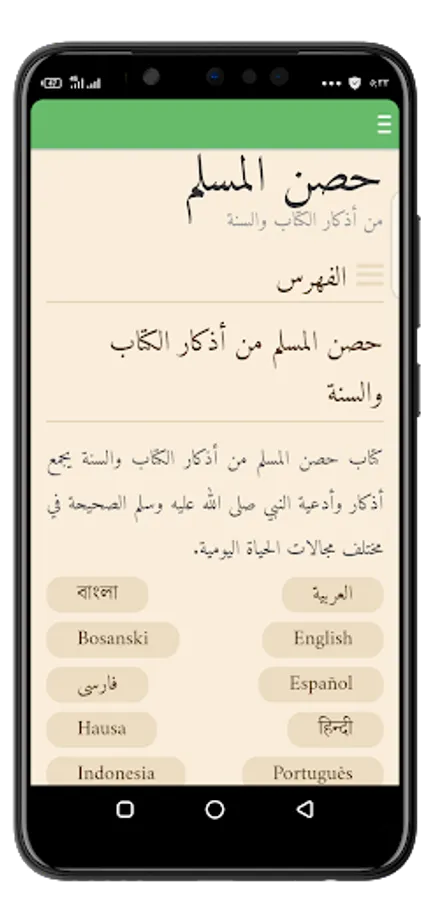 ٥:٢٣
حصن المسلم
من أذكار الكتاب والسنة
الفهرس
حصن المسلم من أذكار الكتاب
والسنة
كتاب حصن المسلم من أذكار الكتاب والسنة يجمع
أذكار وأدعية النبي صلى الله عليه وسلم الصحيحة في
مختلف مجالات الحياة اليومية.
العربية
বাংলা
English
Bosanski
Español
فارسی
हिन्दी
Hausa
Português
Indonesia